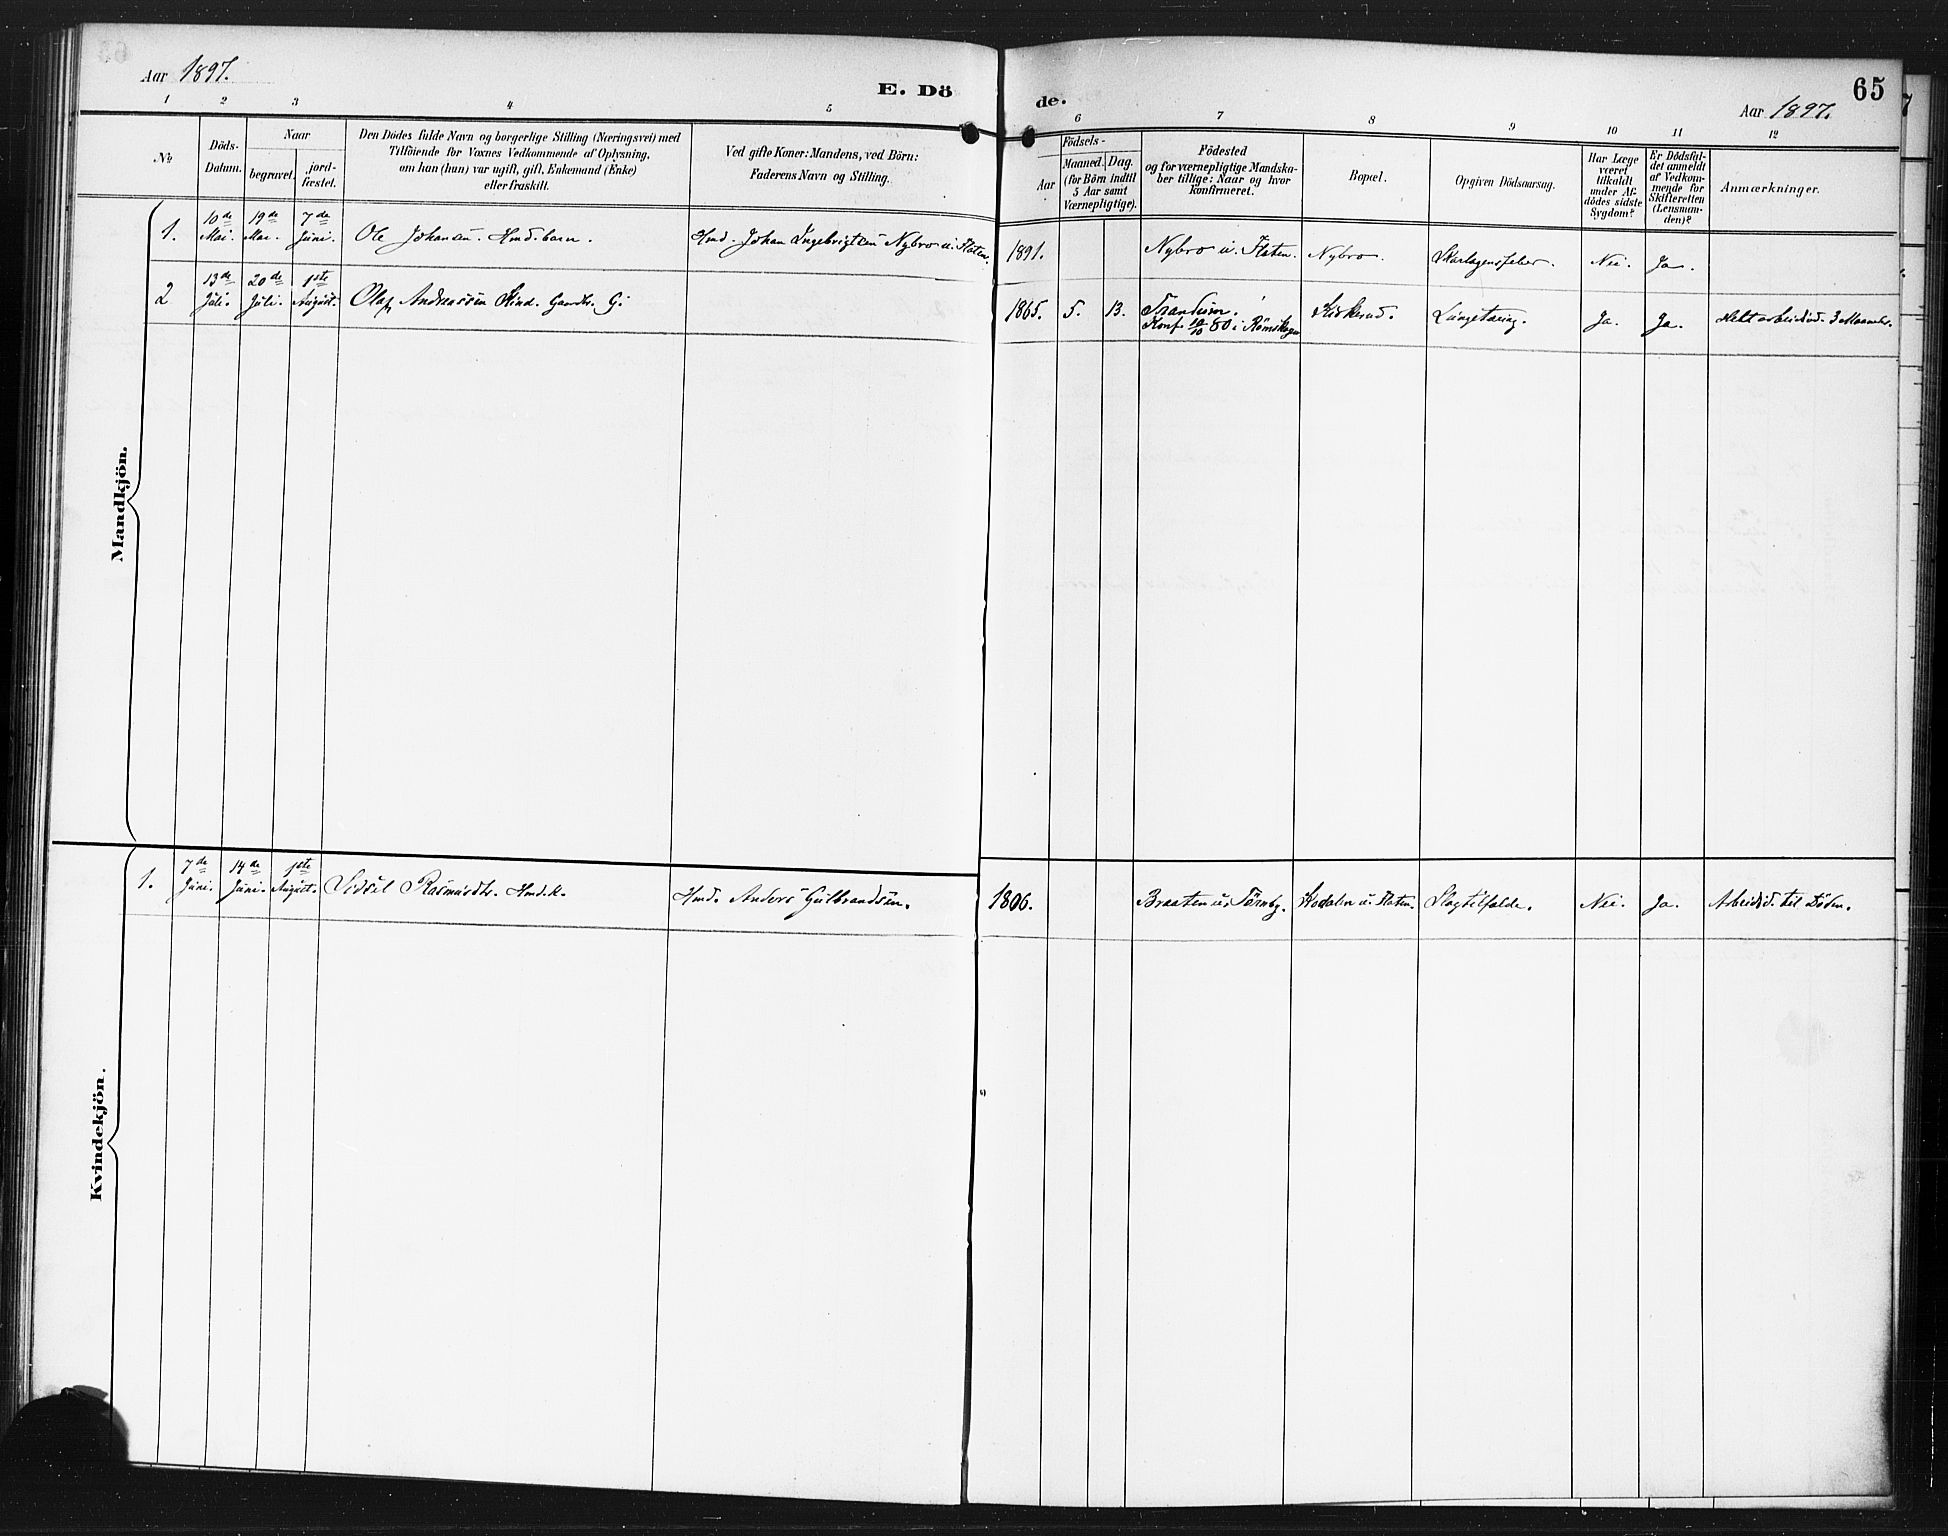 Aar 1897.
E. Dö
de.
Aar 1897.
65
1 2 3 4 5 6 7 8 9 10 11 12
No
Döds-
Datum.
Naar
begravet.
jord-
fæstet.
Den Dödes fulde Navn og borgerlige Stilling (Næringsvei) med
Tilföiende for Voxnes Vedkommende af Oplysning,
om han (hun) var ugift, gift, Enkemand (Enke)
eller fraskilt.
Ved gifte Koner: Mandens, ved Börn:
Faderens Navn og Stilling.
Födsels-
Aar
Maaned. Dag.
(for Börn indtil
5 Aar samt
Værnepligtige).
Födested
og for værnepligtige Mandska-
ber tillige: Naar og hvor
Konfirmeret.
Bopæl.
Opgiven Dödsaarsag.
Har Læge
været
tilkaldt
under Af-
dödes sidste
Sygdom?
Er Dödsfal-
det anmeldt
af Vedkom-
mende for
Skifteretten
(Lensman-
den)?
Anmærkninger.
Mandkjön.
1. 10de Mai. 19de Mai. 7de Juni. Ole Johansen. Hmdsbarn. Hmd. Johan Ingebrigtsen Nybro u. Flaten. 1891. Nybro u. Flaten. Nybro. Skarlagensfeber. Nei. Ja.
2 13de Juli. 20de Juli. 1ste August. Olaf Andreassen Kind. Gaardbr. G. 1865. 5. 13. Trandum.
Konf. 10/10 80 i Rømskogen Kirkerud. Lungetæring. Ja. Ja. Helt arbeidsud. 3 Maaneder.
Kvindekjön.
1. 7de Juni. 14de Juni. 1ste August. Sidsel Rasmusdtr. Hmd.k. Hmd. Anders Gulbrandsen. 1806. Braaten u. Tørnby. Kodalen u. Flaten. Slagtilfælde. Nei. Ja. Arbeidsd. til Døden.